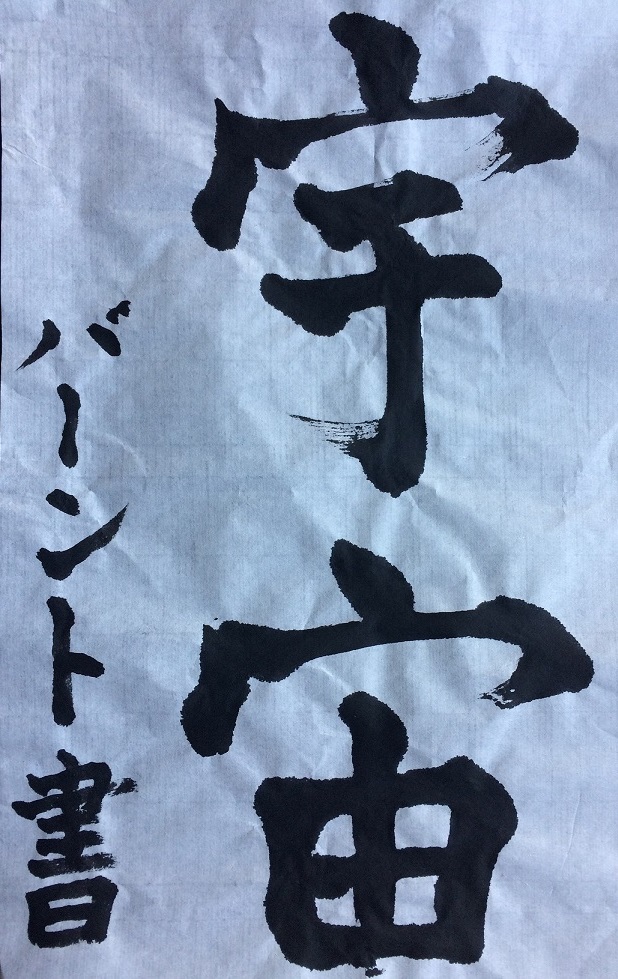 宇宙
バーント書